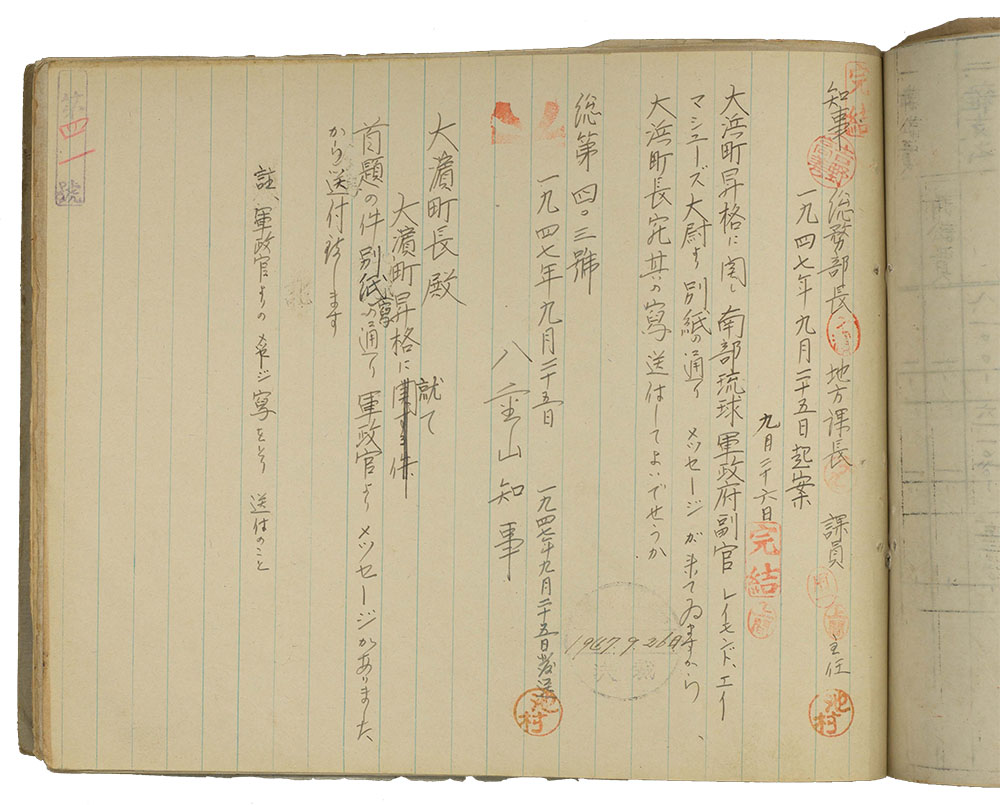 完結
知事 総務部長 地方課長 課員 主任 池村
一九四七年九月二十五日起案
九月二十六日 完結
大浜町昇格に関し南部琉球軍政府副官レイモンド、エイ
マシューズ大尉より別紙の通りメッセージが来てゐますから、
大浜町長宛其の写送付してよいでせうか
1947.9.26
総第四〇三號
一九四七年九月二十五日 一九四七年九月二十五日発送 池村
八重山知事
大濱町長殿
大濱町昇格に就て
首題の件別紙写の通り軍政官よりメッセージがありました
から送付致します
註、軍政官よりのメッセージ寫をとり送付のこと
第四一號